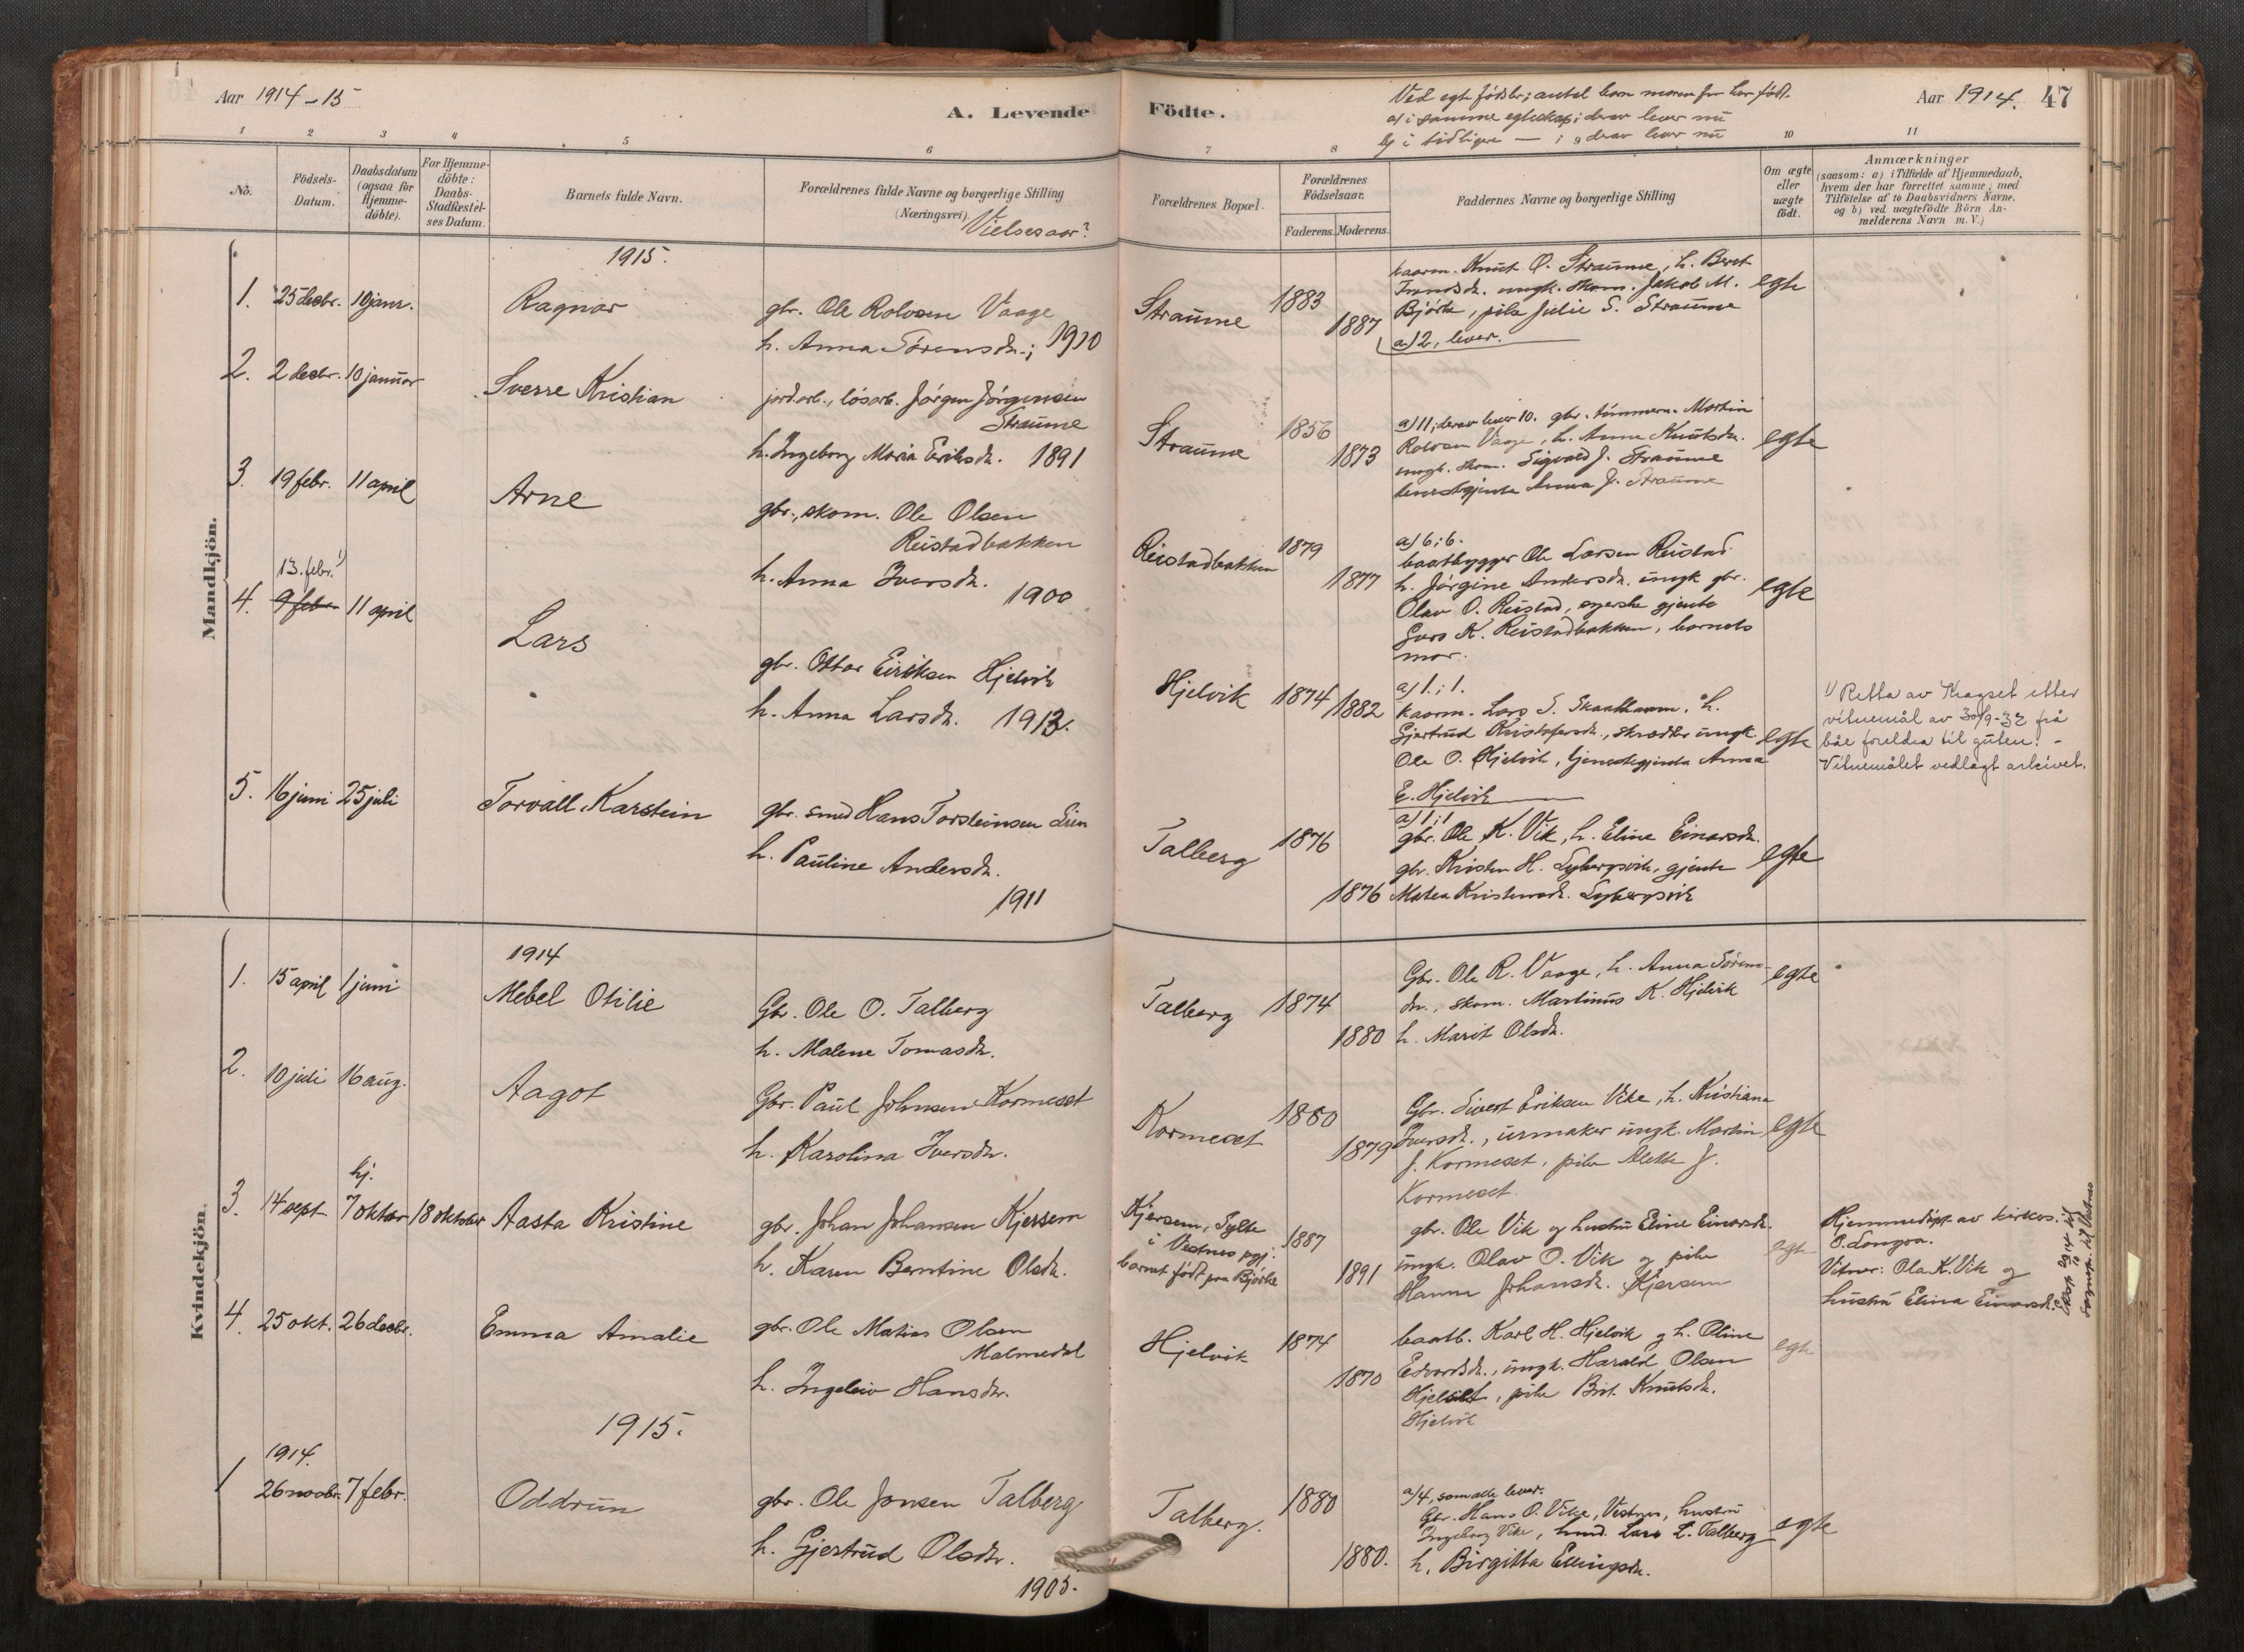 Aar 1914-15
A. Levende Födte.
Ved egte födsler; antal barn moren før har födt.
a) i samme egteskap; derav lever nu
b) i tidligere — ; derav lever nu
Aar 1914. 47
1 2 3 4 5 6 7 8 10 11
No.
Födsels-Datum.
Daabsdatum (ogsaa for Hjemme-döbte).
For Hjemme-döbte: Daabs-Stadfæstel-ses Datum.
Barnets fulde Navn.
Forældrenes fulde Navne og borgerlige Stilling (Næringsvei).
Vielsesaar?
Forældrenes Bopæl.
Forældrenes Födselsaar.
Faderens. Moderens.
Faddernes Navne og borgerlige Stilling
Om ægte eller uægte födt.
Anmærkninger
(saasom: a) i Tilfælde af Hjemmedaab,
hvem der har forrettet samme, med
Tilföielse af to Daabsvidners Navne.
og b) ved uægtefödte Börn An-
melderens Navn m. V.)
Mandkjön.
1915.
1. 25 decbr. 10 janr. Ragnar
gbr. Ole Rolvsen Vaage
h. Anna Sørensdr.; 1910
Straume 1883 1887
kaarm. Knut O. Straume, h. Beret
ungk. skom. Jakob M.
Bjørke, pike Julie S. Straume
a) 2, lever.
egte
2. 2 decbr. 10 januar Sverre Kristian
jordarb., løsarb. Jørgen Jørgensen
Straume
h. Ingeborg Maria Eriksdr. 1891
Straume 1856 1873
a) 11; derav lever 10. gbr. tömmerm. Martin
Rolvsen Vaage, h. Anna Knutsdr.
ungk. skom. Sigvald J. Straume
Anna J. Straume
egte
3. 19 febr. 11 april Arne
gbr., skom. Ole Olsen
Reistadbakken
h. Anna Iversdr. 1900
Reistadbakken 1879 1877
a) 6; 6.
baatbygger Ole Larsen Reistad
h. Jørgine Andersdr. ungk gbr.
Olav O. Reistad, syerske gjente
Guro K. Reistadbakken, barnets
mor.
egte
13. febr. 1)
4. 9 febr 11 april Lars
gbr. Ottar Eiriksen Hjelvik
h. Anna Larsdr. 1913.
Hjelvik 1874 1882
a) 1; 1.
kaarm. Lars S. h.
Gjertrud Kristofersdr., skrædder ungk.
Ole O. Hjelvik, Anna
E. Hjelvik
egte
1) Retta av Kragset etter
vitnemål av 30/9-32 frå
båe foreldra til guten. -
Vitnemålet vedlagt arkivet.
5. 16 juni 25 juli Torvall Karstein
gbr. smed Hans Torsteinsen Lien
h. Pauline Andersdr.
1911
Talberg 1876 1876
a) 1; 1
gbr. Ole K. Vik, h. Eline Einarsdr.
gbr. Kristen H. Sylvergsvik, gjente
Matea Kristensdr.
egte
Kvindekjön.
1914
1. 15 april 1 juni Mebel Otilie
Gbr. Ole O. Talberg
h. Malene Tomasdr.
Talberg 1874 1880
Gbr. Ole R. Vaage, h. Anna Sörens-
dr., skom. Martinus K. Hjelvik
h. Marit Olsdr.
egte
2. 10 juli 16 aug. Aagot
Gbr. Paul Johnsen Kormeset
h. Karolina Iversdr.
Kormeset 1880 1879
Gbr. Sivert Eriksen Vike, h. Kristiana
Iversdr., urmaker ungk. Martin
J. Kormeset, pike Mette J.
Kormeset.
egte
hj.
3. 14 sept 7 oktbr 18 oktober Aasta Kristine
gbr. Johan Johansen Kjersem
h. Karen Berntine Olsdr.
Kjersem, Sylte
i Vestnes pgj.
barnet født paa Bjørke
1887 1891
gbr. Ole Vik og hustru Eline Einarsdr.
ungk. Olav O. Vik og pike
Hanna Johansdr. Kjersem
egte
Hjemmedøpt av kirkes.
O. Longva.
Vitner: Ola K. Vik og
hustru Elina Einarsdr.
4. 25 okt. 26 decbr. Emma Amalie
gbr. Ole Matias Olsen
Malmedal
h. Ingeleiv Hansdr.
Hjelvik 1874 1870
baatb. Karl H. Hjelvik og h. Oline
Edvardsdr., ungk. Harald Olsen
pike Brit Knutsdr.
Hjelvik
egte
1915.
1914.
1 26 novbr. 7 febr. Oddrun
gbr. Ole Jonsen Talberg
h. Gjertrud Olsdr.
1905.
Talberg. 1880 1880.
a) 4, som alle lever.
Gbr. Hans O. Vike, Vestnes, hustru
Ingeborg Vike, Lars L. Talberg
h. Birgitta Ellingsdr.
egte